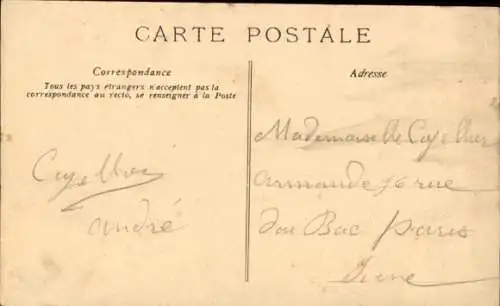 CARTE POSTALE
Correspondance
Tous les pays étrangers n'acceptent pas la
correspondance au recto, se renseigner à la Poste
Adresse
Mademoiselle
armande 76 rue
du Bac Paris
Seine
André